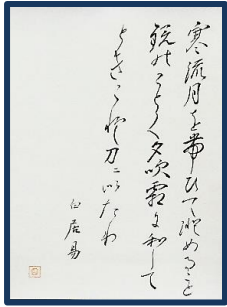 寒流月を帯ひて澄めること
鏡のことく夕吹霜に和して
ときこと刀ニ似たり
白居易